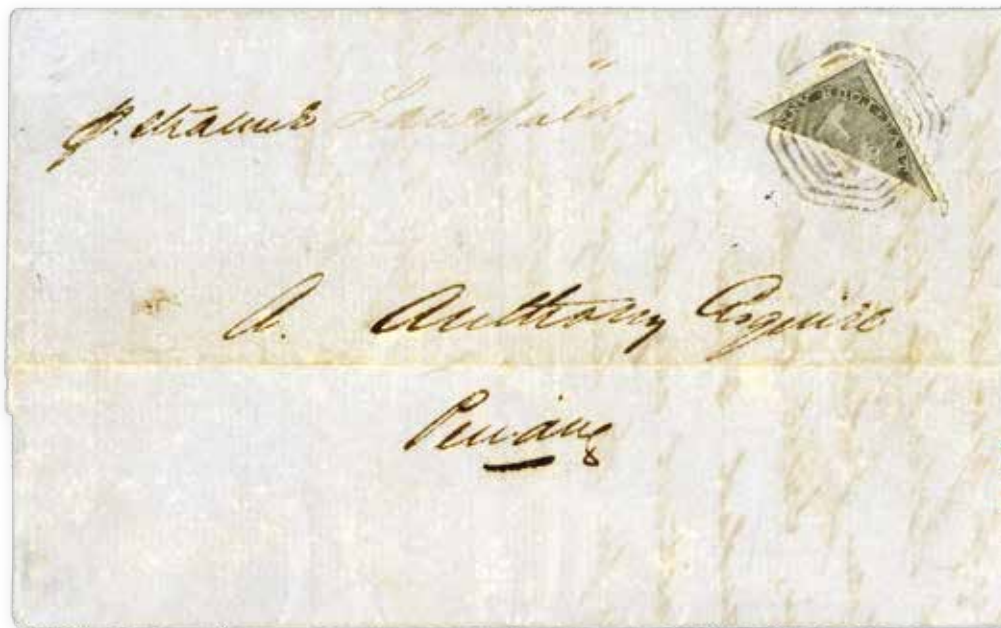 p. steamer Lancefield
A. Anthony Esquire
Penang